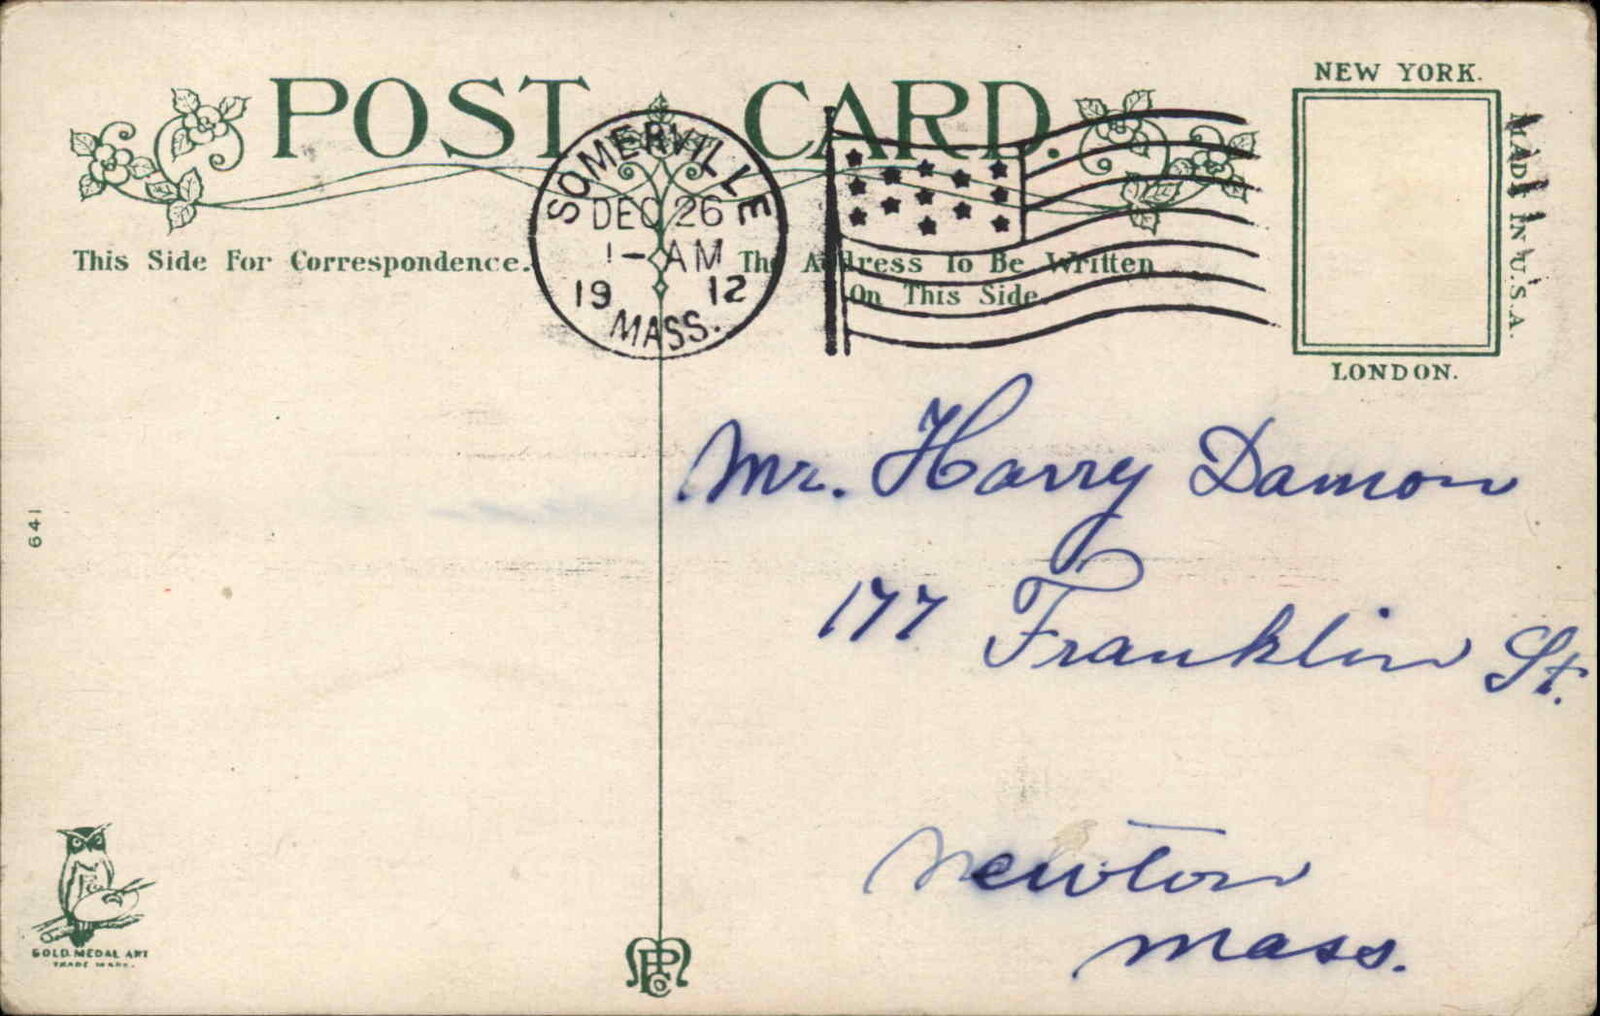 POST CARD.
NEW YORK.
MADE IN U.S.A.
LONDON.
SOMERVILLE
DEC 26
1-AM
19 12
MASS.
This Side For Correspondence.
The Address To Be Written
On This Side.
Mr. Harry Damon
177 Franklin St.
Newton
Mass.
641
GOLD MEDAL ART
TRADE MARK.